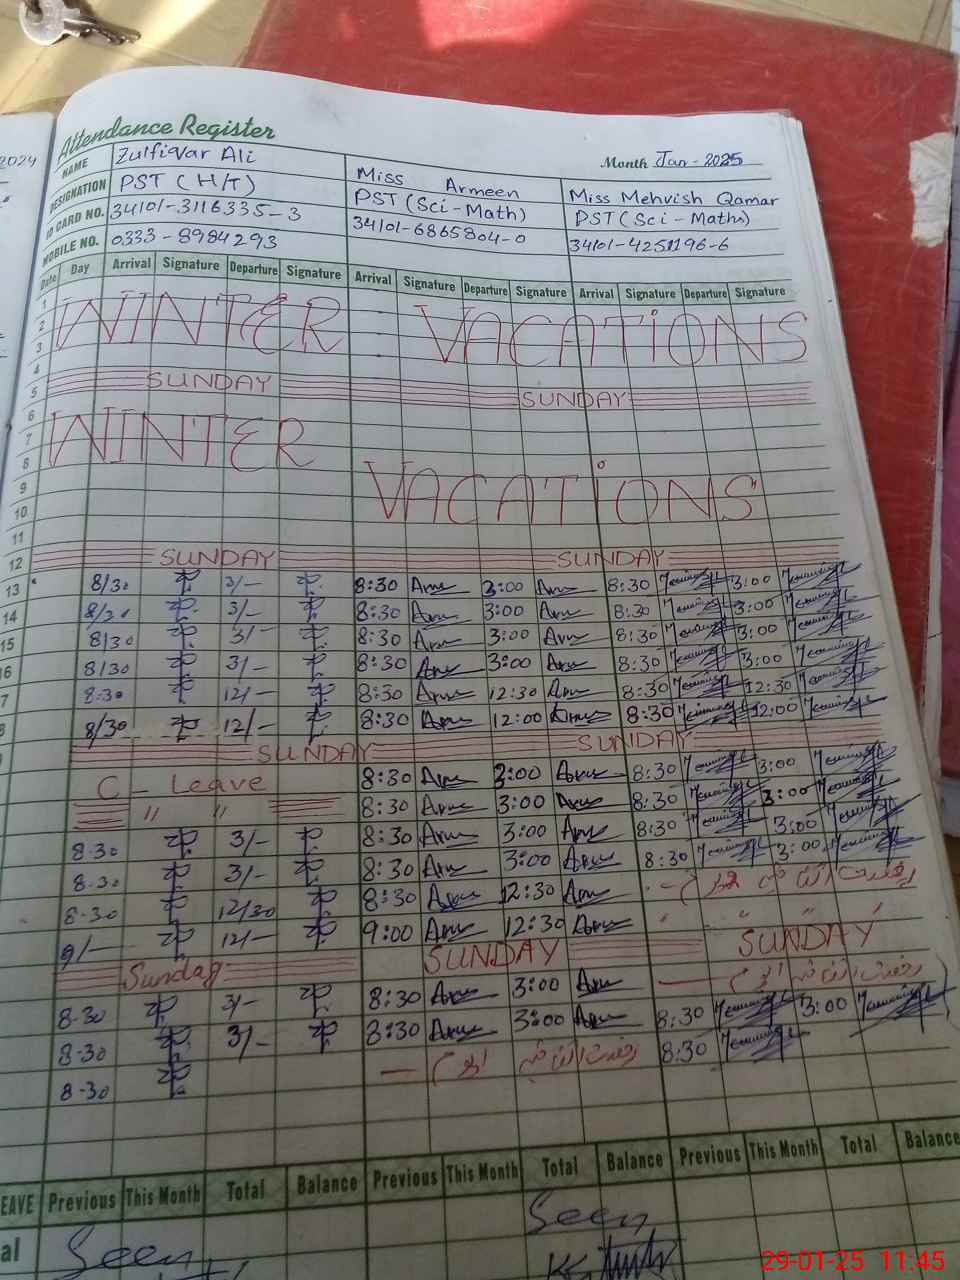 2024
Attendance Register
Month Jan - 2025
NAME Zulfiqar Ali Miss Armeen Miss Mehvish Qamar
DESIGNATION PST (H/T) PST (Sci-Math) PST (Sci-Maths)
ID CARD NO. 34101-3116335-3 34101-6865804-0 34101-4251196-6
MOBILE NO. 0333-8984293
Date Day Arrival Signature Departure Signature Arrival Signature Departure Signature Arrival Signature Departure Signature
1
2 WINTER VACATIONS
3
4
5 SUNDAY SUNDAY
6
7 WINTER
8
9 VACATIONS
10
11
12 SUNDAY SUNDAY
13 8/30 3/- 8:30 Arm 3:00 Arm 8:30 3:00
14 8/30 3/- 8:30 Arm 3:00 Arm 8:30 3:00
15 8/30 3/- 8:30 Arm 3:00 Arm 8:30 3:00
16 8/30 3/- 8:30 Arm 3:00 Arm 8:30 3:00
7 8-30 12/- 8:30 Arm 12:30 Arm 8:30 12:30
8 8/30 12/- 8:30 Arm 12:00 Arm 8:30 12:00
SUNDAY SUNDAY
C - Leave 8:30 Arm 3:00 Arm 8:30 3:00
" " 8:30 Arm 3:00 Arm 8:30 3:00
8-30 3/- 8:30 Arm 3:00 Arm 8:30 3:00
8-30 3/- 8:30 Arm 3:00 Arm 8:30 3:00
8-30 12/30 8:30 Arm 12:30 Arm
9/- 12/- 9:00 Arm 12:30 Arm " " "
Sunday SUNDAY SUNDAY
8-30 3/- 8:30 Arm 3:00 Arm
8-30 3/- 8:30 Arm 3:00 Arm 8:30 3:00
8-30 8:30
EAVE Previous This Month Total Balance Previous This Month Total Balance Previous This Month Total Balance
al Seen Seen
29-01-25 11:45